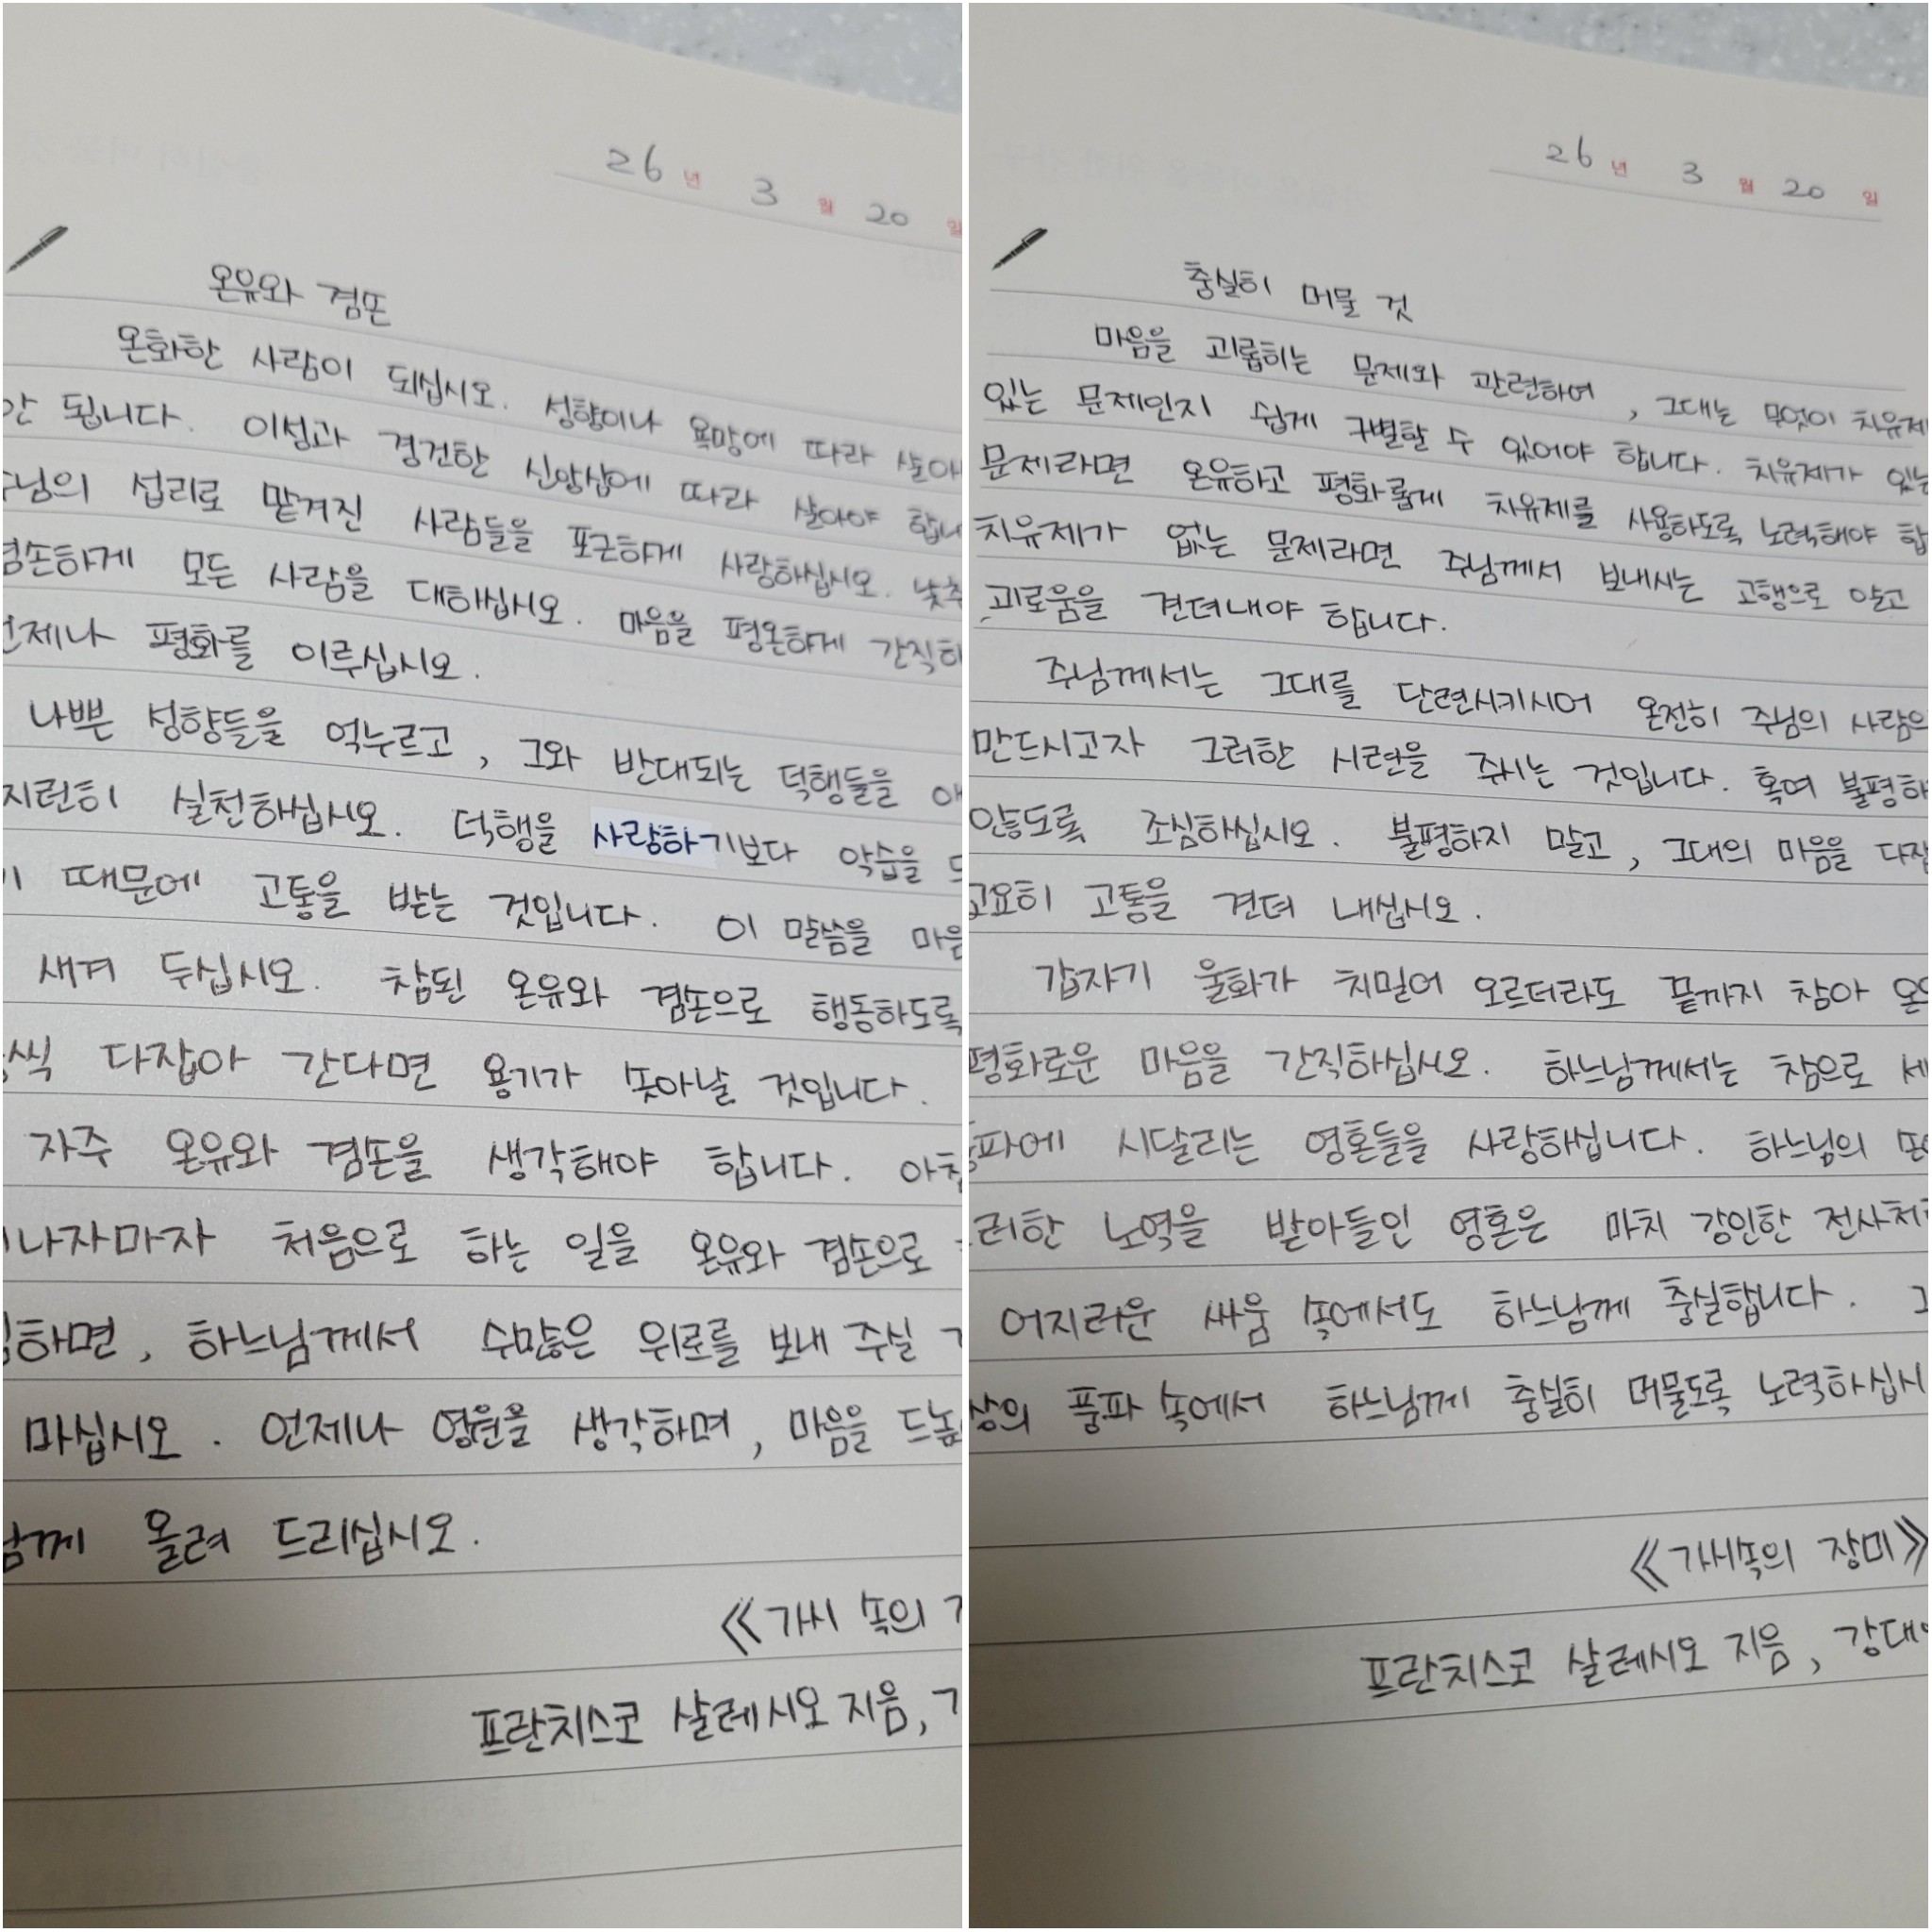 26년 3월 20일
온유와 겸손
온화한 사람이 되십시오. 성향이나 욕망에 따라 살아
안 됩니다. 이성과 경건한 신앙심에 따라 살아야 합니
주님의 섭리로 맡겨진 사람들을 포근하게 사랑하십시오. 낮추
겸손하게 모든 사람을 대하십시오. 마음을 평온하게 간직하
언제나 평화를 이루십시오.
나쁜 성향들을 억누르고, 그와 반대되는 덕행들을
지런히 실천하십시오. 덕행을 사랑하기보다 악습을
때문에 고통을 받는 것입니다. 이 말씀을 마음
새겨 두십시오. 참된 온유와 겸손으로 행동하도록
씩 다잡아 간다면 용기가 솟아날 것입니다.
자주 온유와 겸손을 생각해야 합니다. 아침
나자마자 처음으로 하는 일을 온유와 겸손으로
하면, 하느님께서 수많은 위로를 보내 주실
마십시오. 언제나 영원을 생각하며, 마음을 드높
님께 올려 드리십시오.
《가시 속의
프란치스코 살레시오 지음,
26년 3월 20일
충실히 머물 것
마음을 괴롭히는 문제와 관련하여, 그대는 무엇이 치유제
있는 문제인지 쉽게 구별할 수 있어야 합니다. 치유제가 있는
문제라면 온유하고 평화롭게 치유제를 사용하도록 노력해야 합
치유제가 없는 문제라면 주님께서 보내시는 고행으로 알고
괴로움을 견뎌내야 합니다.
주님께서는 그대를 단련시키시어 온전히 주님의 사람으
만드시고자 그러한 시련을 주시는 것입니다. 혹여 불평하
않도록 조심하십시오. 불평하지 말고, 그대의 마음을 다잡
고요히 고통을 견뎌 내십시오.
갑자기 울화가 치밀어 오르더라도 끝까지 참아 온
평화로운 마음을 간직하십시오. 하느님께서는 참으로 세
풍파에 시달리는 영혼들을 사랑하십니다. 하느님의
러한 노역을 받아들인 영혼은 마치 강인한 전사처
어지러운 싸움 속에서도 하느님께 충실합니다.
상의 풍파 속에서 하느님께 충실히 머물도록 노력하십시
《가시속의 장미》
프란치스코 살레시오 지음, 강대